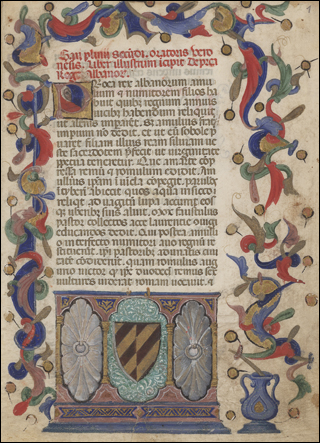 plinij secūdi, oratoris vero
nēsis, liber illustrium īcipit De
Rege albanor.
roca rex albanorum amu
lium et numitorem filios ha
buit quibz regnum annuis
vicibz habendum reliquit
ut alternis imparet. Sz amulius fratri
impium nō dedit. et ut eū sobole p
uaret filiam illius ream siluiam ue
ste sacerdotem pfecit ut uirginitate
ppetua teneretur. Que amarte cōp
ressa remū et romulum edidit. Am
ulius ipsam ī uīcla cōpegit, paruulos
ī abiecit quos aqua ī sicco
reliqt. ad uagitū lupa accurrit eos
qz uberibz suis aluit. mox faustulus
pastor collectos acce laurentie coniugi
educandos dedit. Qui postea amuli
o interfecto numitori auo regnū re
stituerūt. ipsi pastoribz adunatis ciui
tatē cōdiderūt. quam romulus aug
urio uictor qz ipe duodecī remus sex
uultures uiderat romam uocauit.